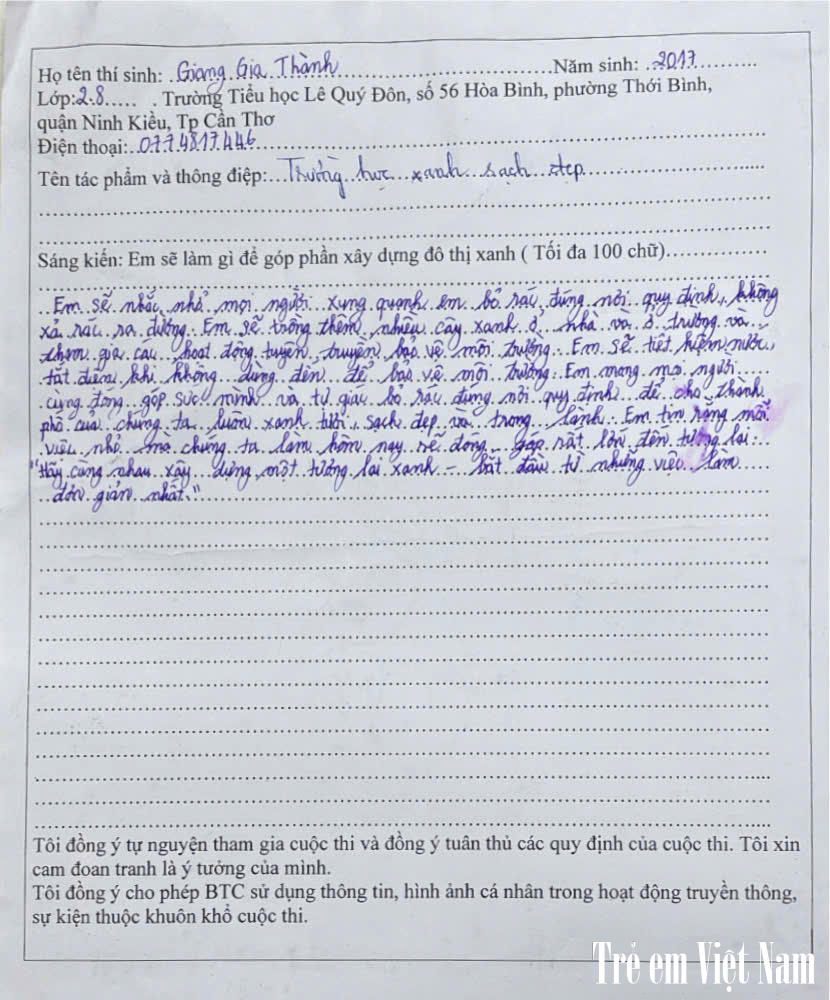 Họ tên thí sinh: Giang Gia Thành Năm sinh: 2017
Lớp: 2.8 . Trường Tiểu học Lê Quý Đôn, số 56 Hòa Bình, phường Thới Bình,
quận Ninh Kiều, Tp Cần Thơ
Điện thoại: 0774817446
Tên tác phẩm và thông điệp: Trường học xanh sạch đẹp
Sáng kiến: Em sẽ làm gì để góp phần xây dựng đô thị xanh ( Tối đa 100 chữ)
Em sẽ nhắc nhỏ mọi người xung quanh em bỏ rác đúng nơi quy định, không
xả rác ra đường. Em sẽ trồng thêm nhiều cây xanh ở nhà và ở trường và
tham gia các hoạt động tuyên truyền bảo vệ môi trường. Em sẽ tiết kiệm nước,
tắt điện khi không dùng đến để bảo vệ môi trường. Em mong mọi người
cùng đóng góp sức mình và tự giác bỏ rác đúng nơi quy định để cho thành
phố của chúng ta luôn xanh tươi, sạch đẹp và trong lành. Em tin rằng mỗi
việc nhỏ mà chúng ta làm hôm nay sẽ đóng góp rất lớn đến tương lai.
"Hãy cùng nhau xây dựng một tương lai xanh - bắt đầu từ những việc làm
đơn giản nhất."
Tôi đồng ý tự nguyện tham gia cuộc thi và đồng ý tuân thủ các quy định của cuộc thi. Tôi xin
cam đoan tranh là ý tưởng của mình.
Tôi đồng ý cho phép BTC sử dụng thông tin, hình ảnh cá nhân trong hoạt động truyền thông,
sự kiện thuộc khuôn khổ cuộc thi.
Trẻ em Việt Nam